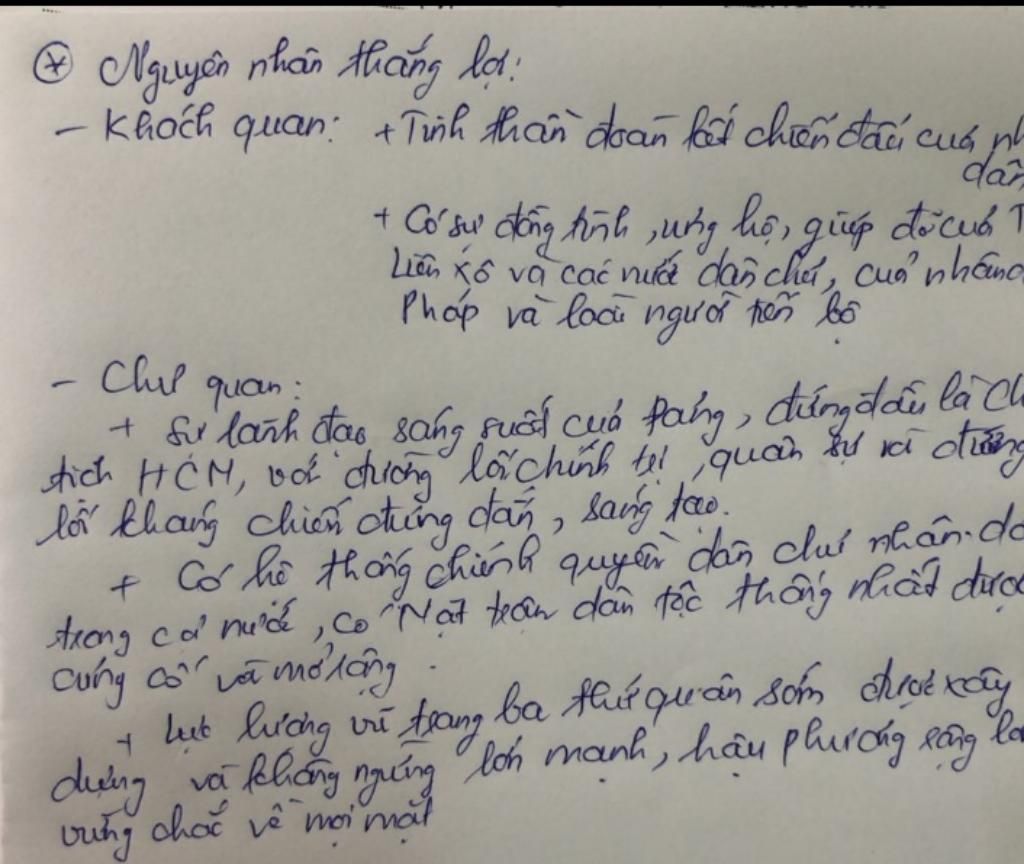 ⊛ Nguyên nhân thắng lợi:
- Khách quan: + Tinh thần đoàn kết chiến đấu của nh
dân
+ Có sự đồng tình, ủng hộ, giúp đỡ của T
Liên Xô và các nước dân chủ, của nhân d
Pháp và loài người tiến bộ
- Chủ quan:
+ Sự lãnh đạo sáng suốt của Đảng, đứng đầu là Ch
tịch HCM, với đường lối chính trị, quân sự và đường
lối kháng chiến đúng đắn, sáng tạo.
+ Có hệ thống chính quyền dân chủ nhân do
trong cả nước, có Mặt trận dân tộc thống nhất được
củng cố và mở rộng.
+ Lực lượng vũ trang ba thứ quân sớm được xây
dựng và không ngừng lớn mạnh, hậu phương rộng lớ
vững chắc về mọi mặt